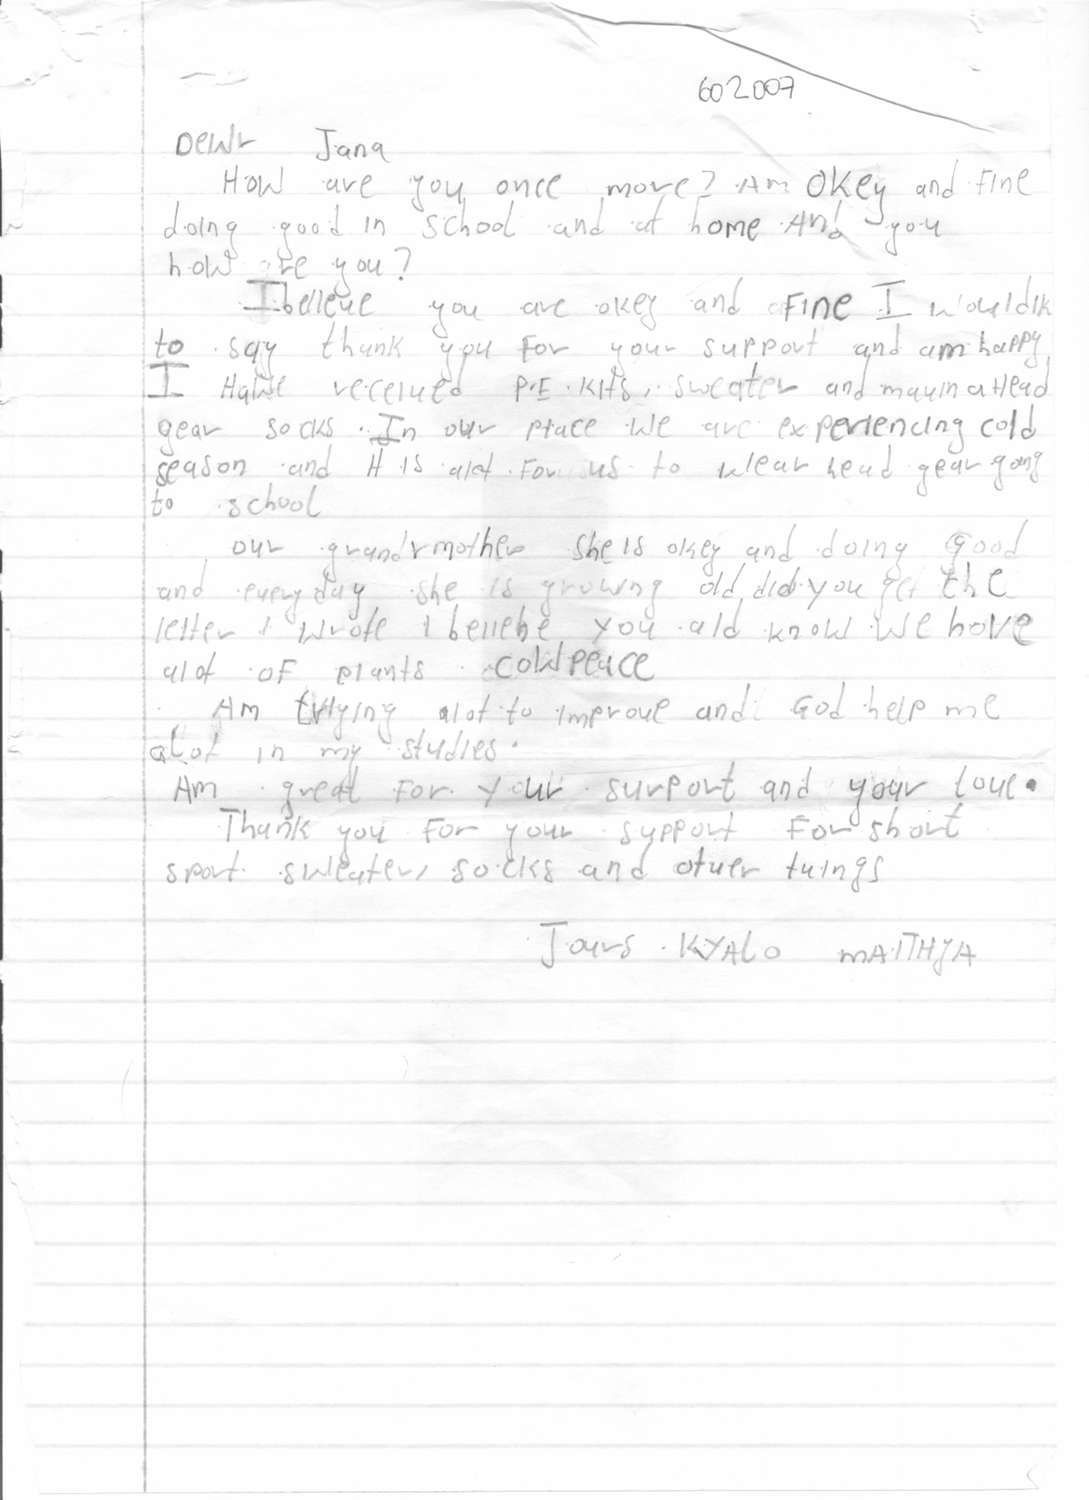 602007
Dewr Jana
How are you once more? Am Okey and fine
doing good in school and at home And you
how are you?
I believe you are okey and Fine I wouldlk
to say thank you for your support and am happy
I Have received P.E kits, sweater and mavin a Head
gear socks. In our place we are experiencing cold
season and it is alot for us to wear head gear gong
to school
our grandrmother she is okey and doing Good
and everyday she is growing old, did you get the
letter I wrote I beliehe you ald know we hove
alot of plants cowpeace
Am trying alot to improve and God help me
alot in my studies.
Am great For your surport and your love.
Thank you for your support For short
sport sweater, socks and otuer tuings
Jours KYALO MAITHYA